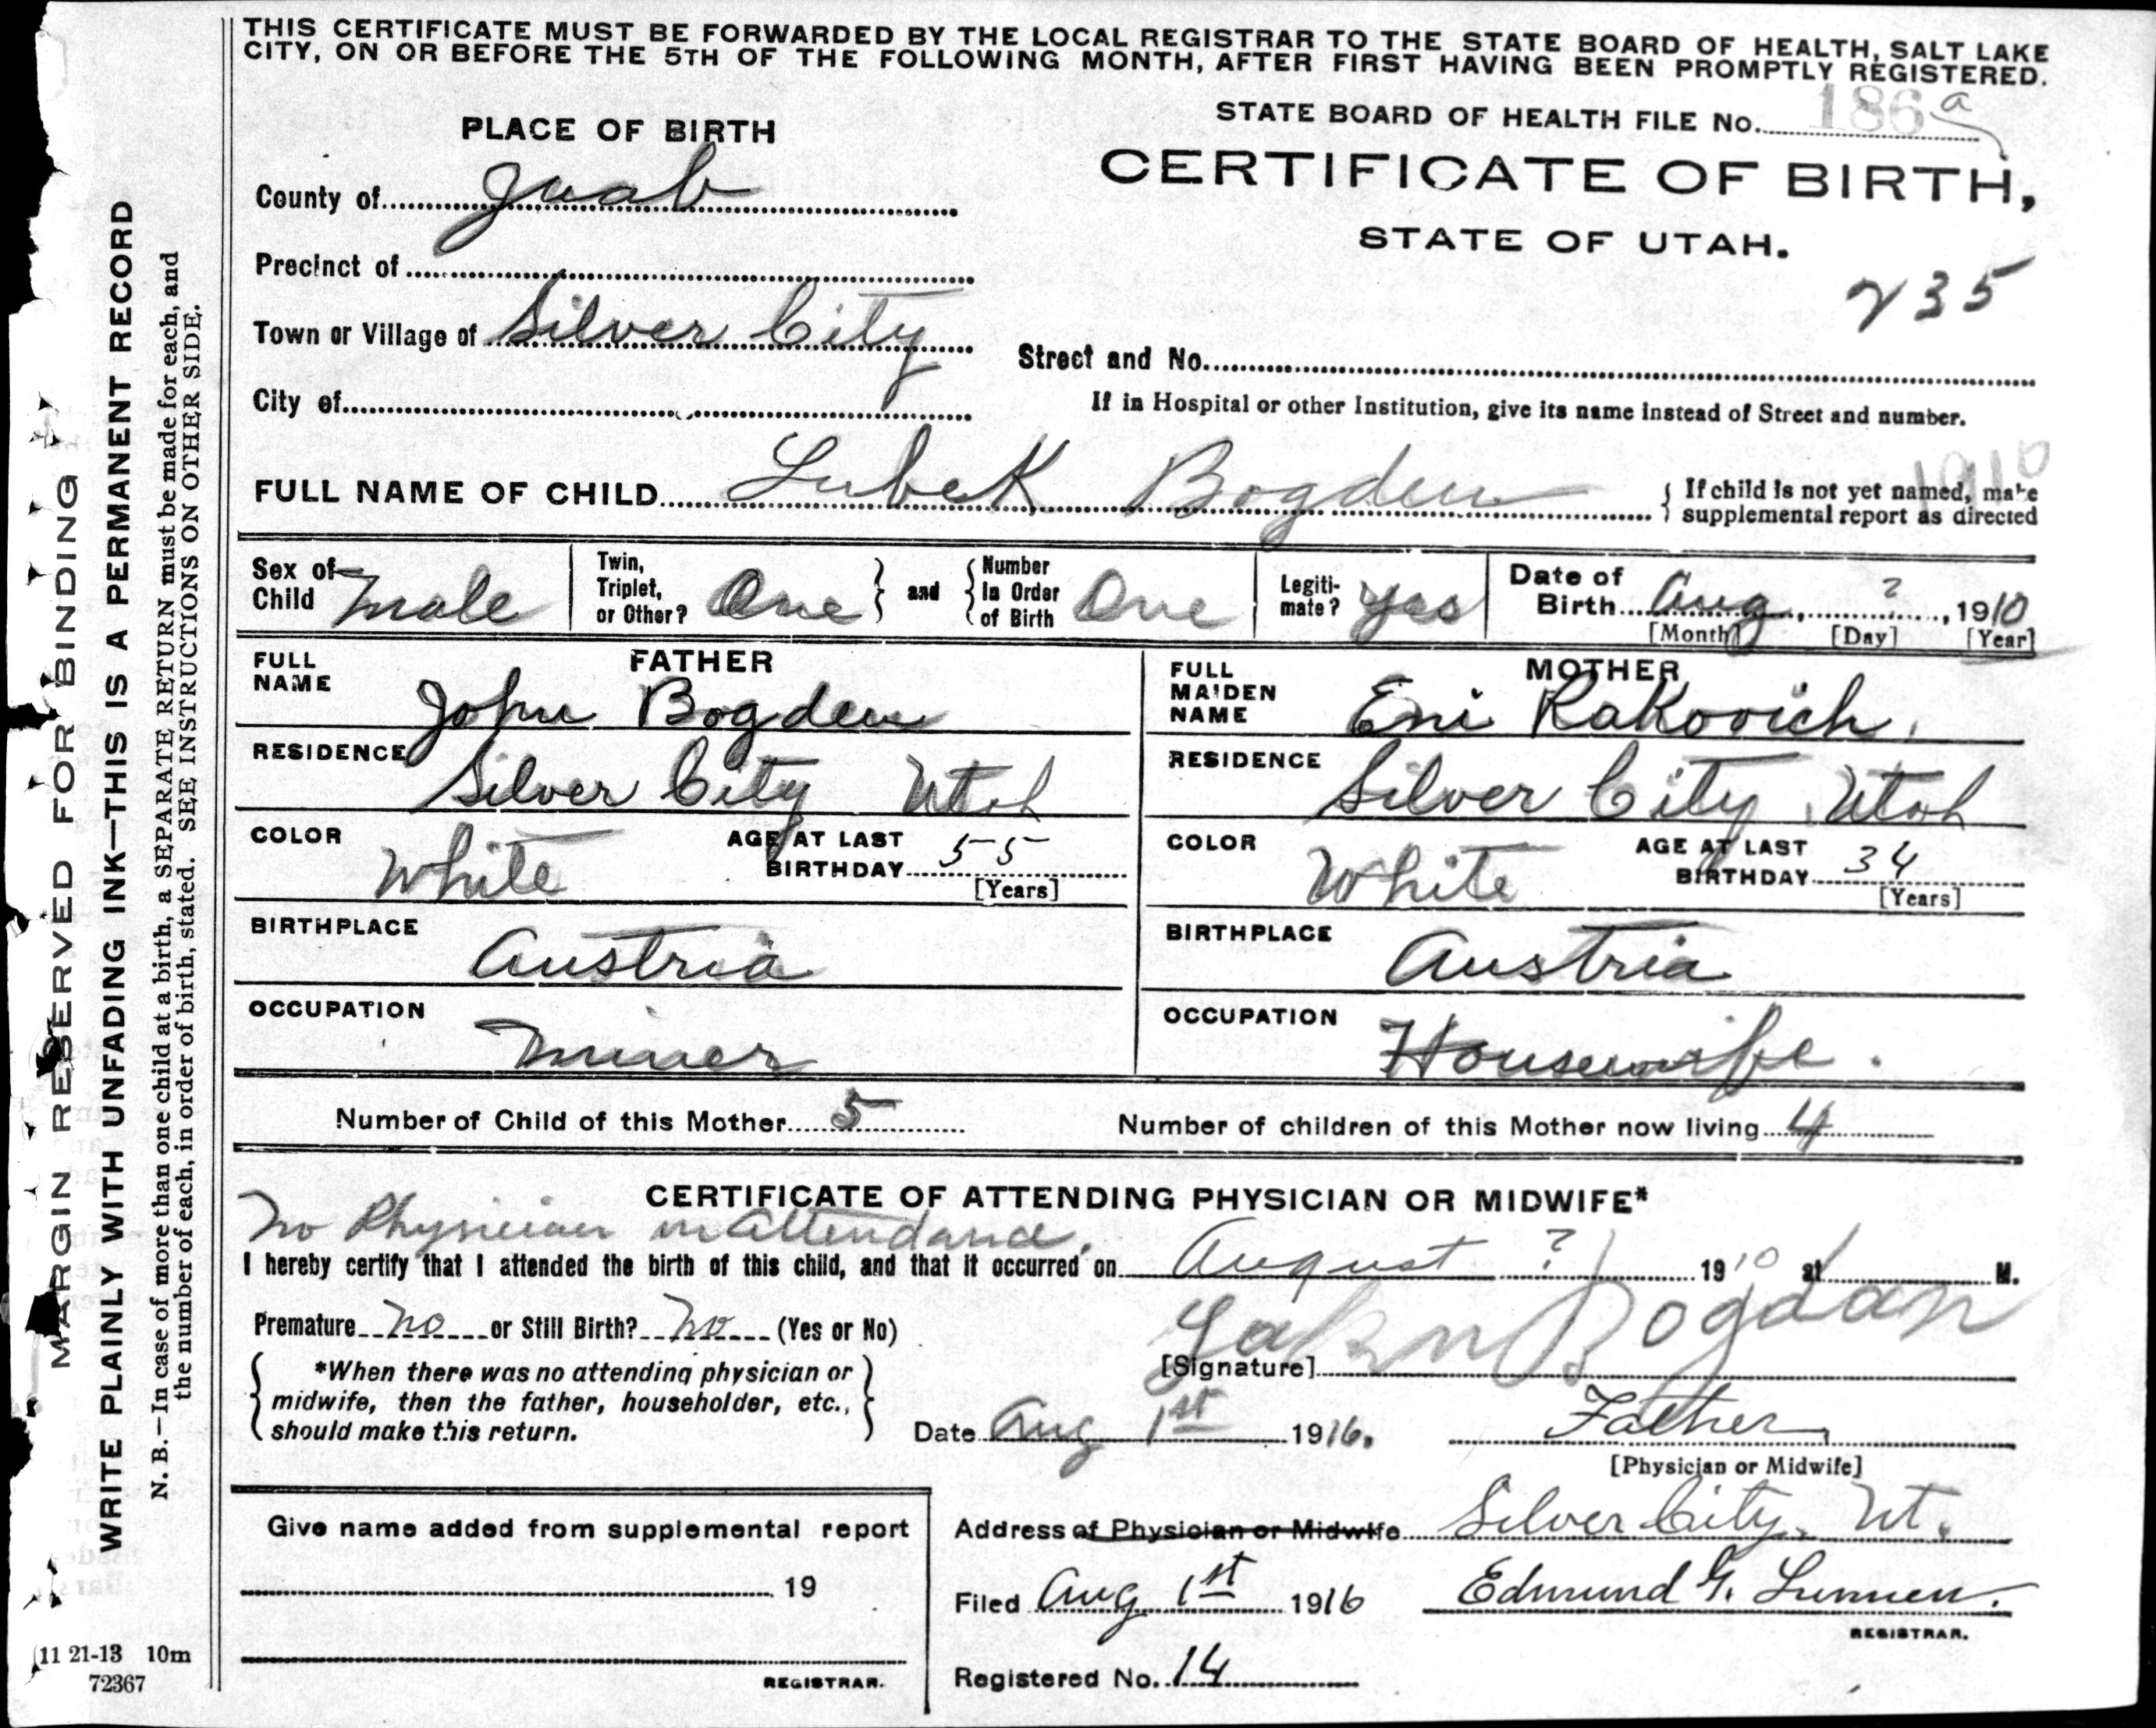 THIS CERTIFICATE MUST BE FORWARDED BY THE LOCAL REGISTRAR TO THE STATE BOARD OF HEALTH, SALT LAKE
CITY, ON OR BEFORE THE 5TH OF THE FOLLOWING MONTH, AFTER FIRST HAVING BEEN PROMPTLY REGISTERED.
STATE BOARD OF HEALTH FILE No. 186 a
PLACE OF BIRTH
CERTIFICATE OF BIRTH,
STATE OF UTAH.
235
County of Juab
Precinct of
Town or Village of Silver City
Street and No.
City of
If in Hospital or other Institution, give its name instead of Street and number.
1910
FULL NAME OF CHILD Lubek Bogden
{ If child is not yet named, make
supplemental report as directed
Sex of Child Male
Twin, Triplet, or Other? One } and { Number in Order of Birth One
Legiti-mate? Yes
Date of Birth Aug, ?, 1910
[Month] [Day] [Year]
FATHER
FULL NAME John Bogden
RESIDENCE Silver City Utah
COLOR White AGE AT LAST BIRTHDAY 55 [Years]
BIRTHPLACE Austria
OCCUPATION Miner
MOTHER
FULL MAIDEN NAME Eni Rakovich.
RESIDENCE Silver City, Utah
COLOR White AGE AT LAST BIRTHDAY 34 [Years]
BIRTHPLACE Austria
OCCUPATION Housewife.
Number of Child of this Mother 5 Number of children of this Mother now living 4
CERTIFICATE OF ATTENDING PHYSICIAN OR MIDWIFE*
No Physician in Attendance.
I hereby certify that I attended the birth of this child, and that it occurred on August ? 1910 at M.
Premature No or Still Birth? No (Yes or No)
[Signature] Bogdan
{ *When there was no attending physician or }
midwife, then the father, householder, etc.,
should make this return.
Date Aug 1st 1916.
Father
[Physician or Midwife]
Address of Physician or Midwife Silver City, Ut.
Filed Aug 1st 1916 Edmund G. Lunnen.
REGISTRAR.
Registered No. 14
Give name added from supplemental report
19
REGISTRAR.
MARGIN RESERVED FOR BINDING
WRITE PLAINLY WITH UNFADING INK—THIS IS A PERMANENT RECORD
N. B.—In case of more than one child at a birth, a SEPARATE RETURN must be made for each, and
the number of each, in order of birth, stated. SEE INSTRUCTIONS ON OTHER SIDE.
(11 21-13 10m
72367